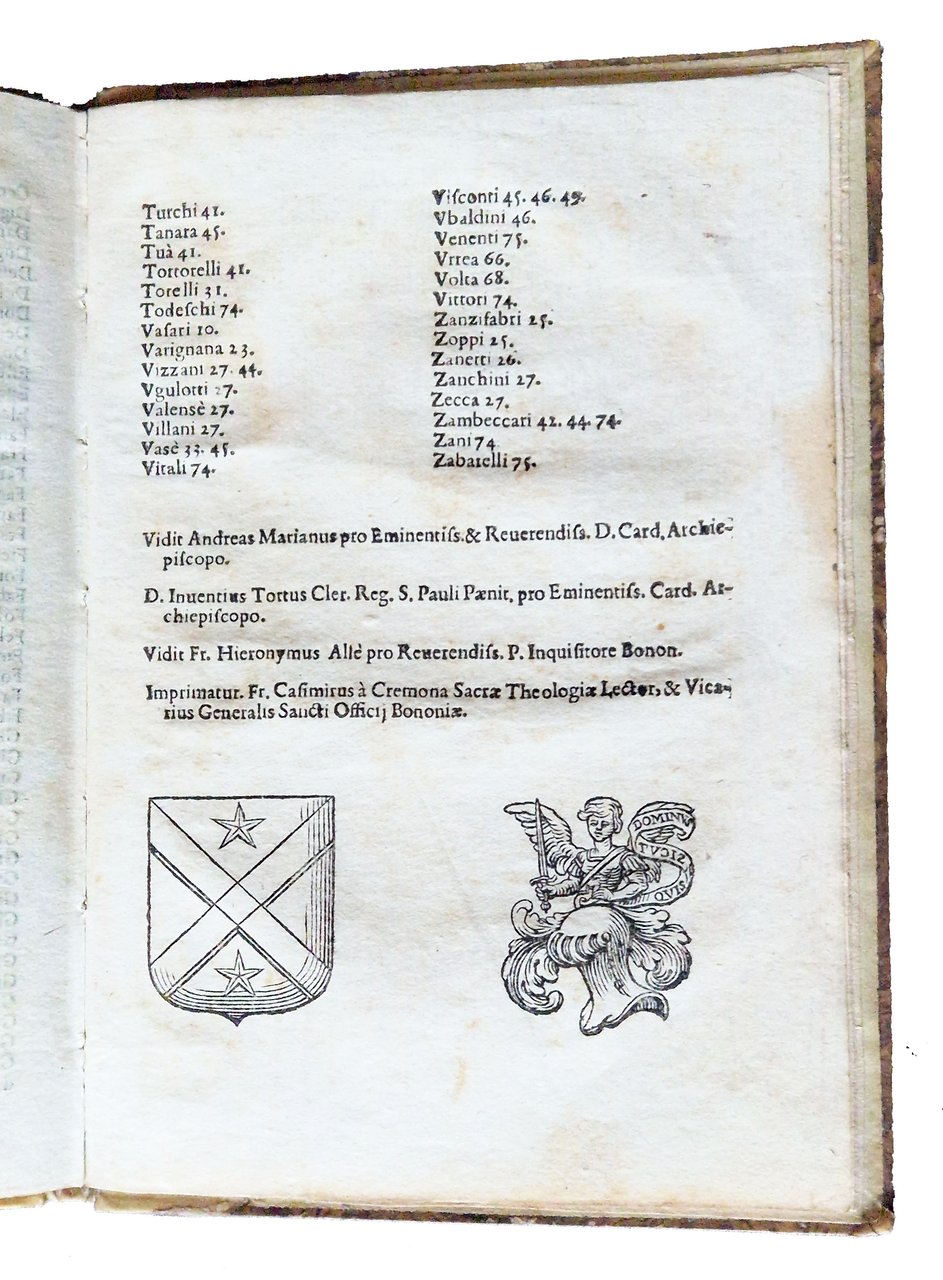 Turchi 41.
Tanara 45.
Tuà 41.
Tortorelli 41.
Torelli 31.
Todeſchi 74.
Vaſari 10.
Varignana 23.
Vizzani 27. 44.
Vgulotti 27.
Valensè 27.
Villani 27.
Vasè 33. 45.
Vitali 74.
Viſconti 45. 46. 49.
Vbaldini 46.
Venenti 75.
Vrrea 66.
Volta 68.
Vittori 74.
Zanzifabri 25.
Zoppi 25.
Zanetti 26.
Zanchini 27.
Zecca 27.
Zambeccari 42. 44. 74.
Zani 74
Zabarelli 75.
Vidit Andreas Marianus pro Eminentiſs. & Reuerendiſs. D. Card. Archie-
piſcopo.
D. Inuentius Tortus Cler. Reg. S. Pauli Pænit. pro Eminentiſs. Card. Ar-
chiepiſcopo.
Vidit Fr. Hieronymus Allè pro Reuerendiſs. P. Inquiſitore Bonon.
Imprimatur. Fr. Caſimirus à Cremona Sacræ Theologiæ Lector, & Vica-
rius Generalis Sancti Officij Bononiæ.
DOMINVS
SICVT
QVIS